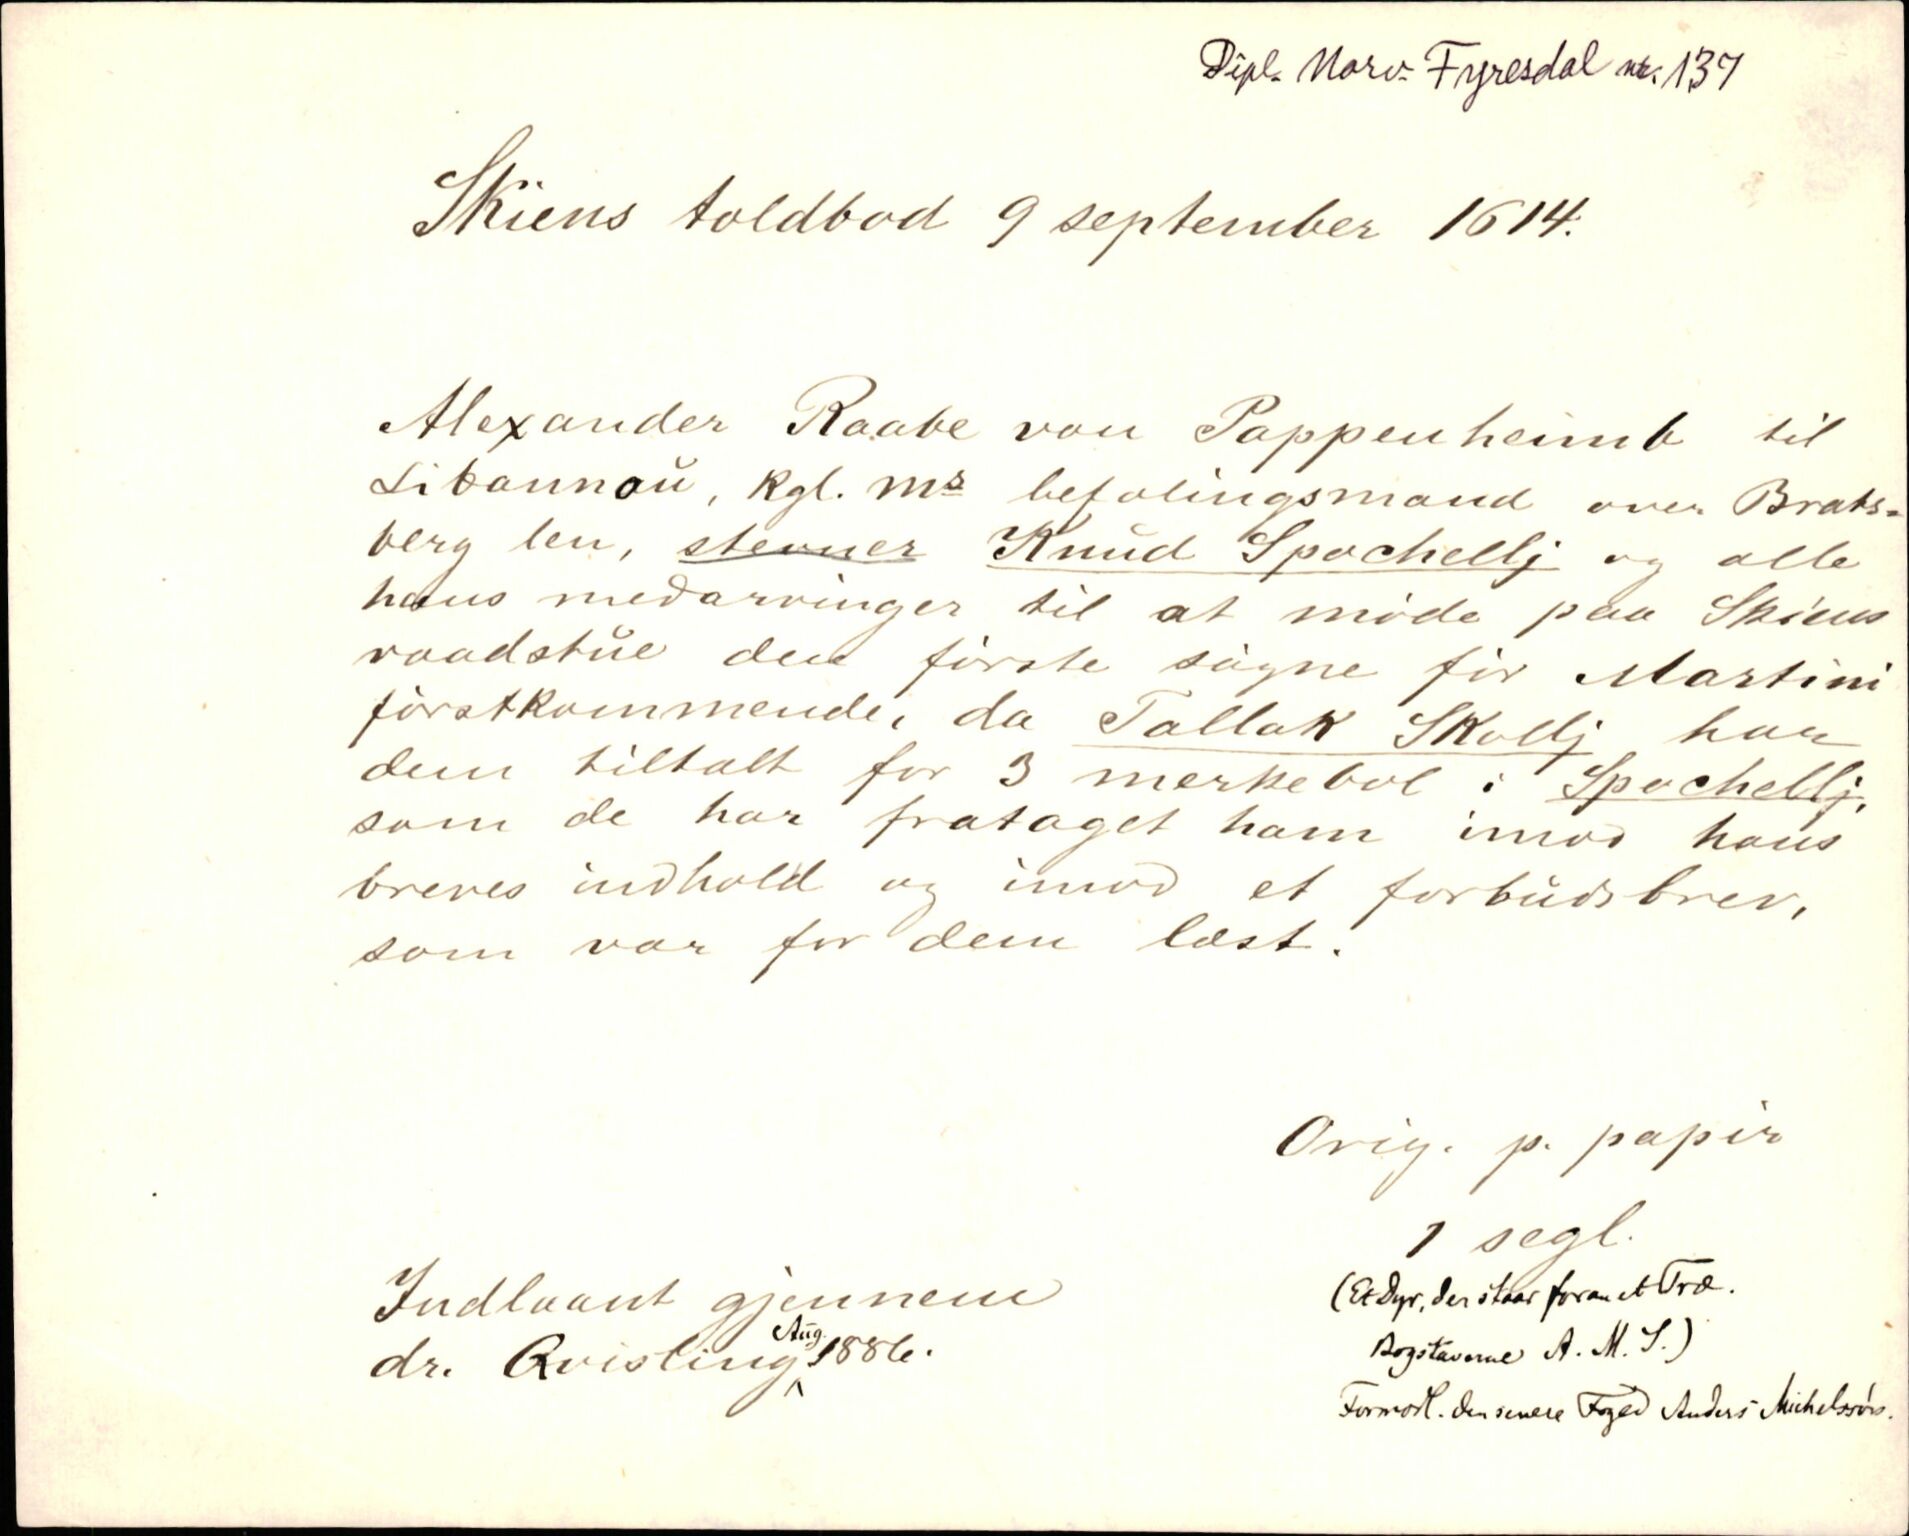 Dipl. Norv. Fyresdal nr. 137
Skiens toldbod 9 september 1614.
Alexander Raabe von Pappenheimb til
Libannaŭ, kgl. Ms befalingsmand over Brats-
berg len, stevner Knŭd Spochellj og alle
hans medarvinger til at møde paa Skiens
raadstŭe den første søgne før Martini
førstkommende, da Tallak Skollj har
dem tiltalt for 3 merkebol i Spochellj,
som de har frataget ham imod hans
breves indhold og imod et forbŭdsbrev,
som var for dem læst.
Orig. p. papir
1 segl.
(Et Dyr, der staar foran et Træ.
Bogstaverne A. M. S.)
Formodtl. den senere Foged Anders Michelssøns.
Indlaant gjennem
dr. Qvisling Aug. 1886.